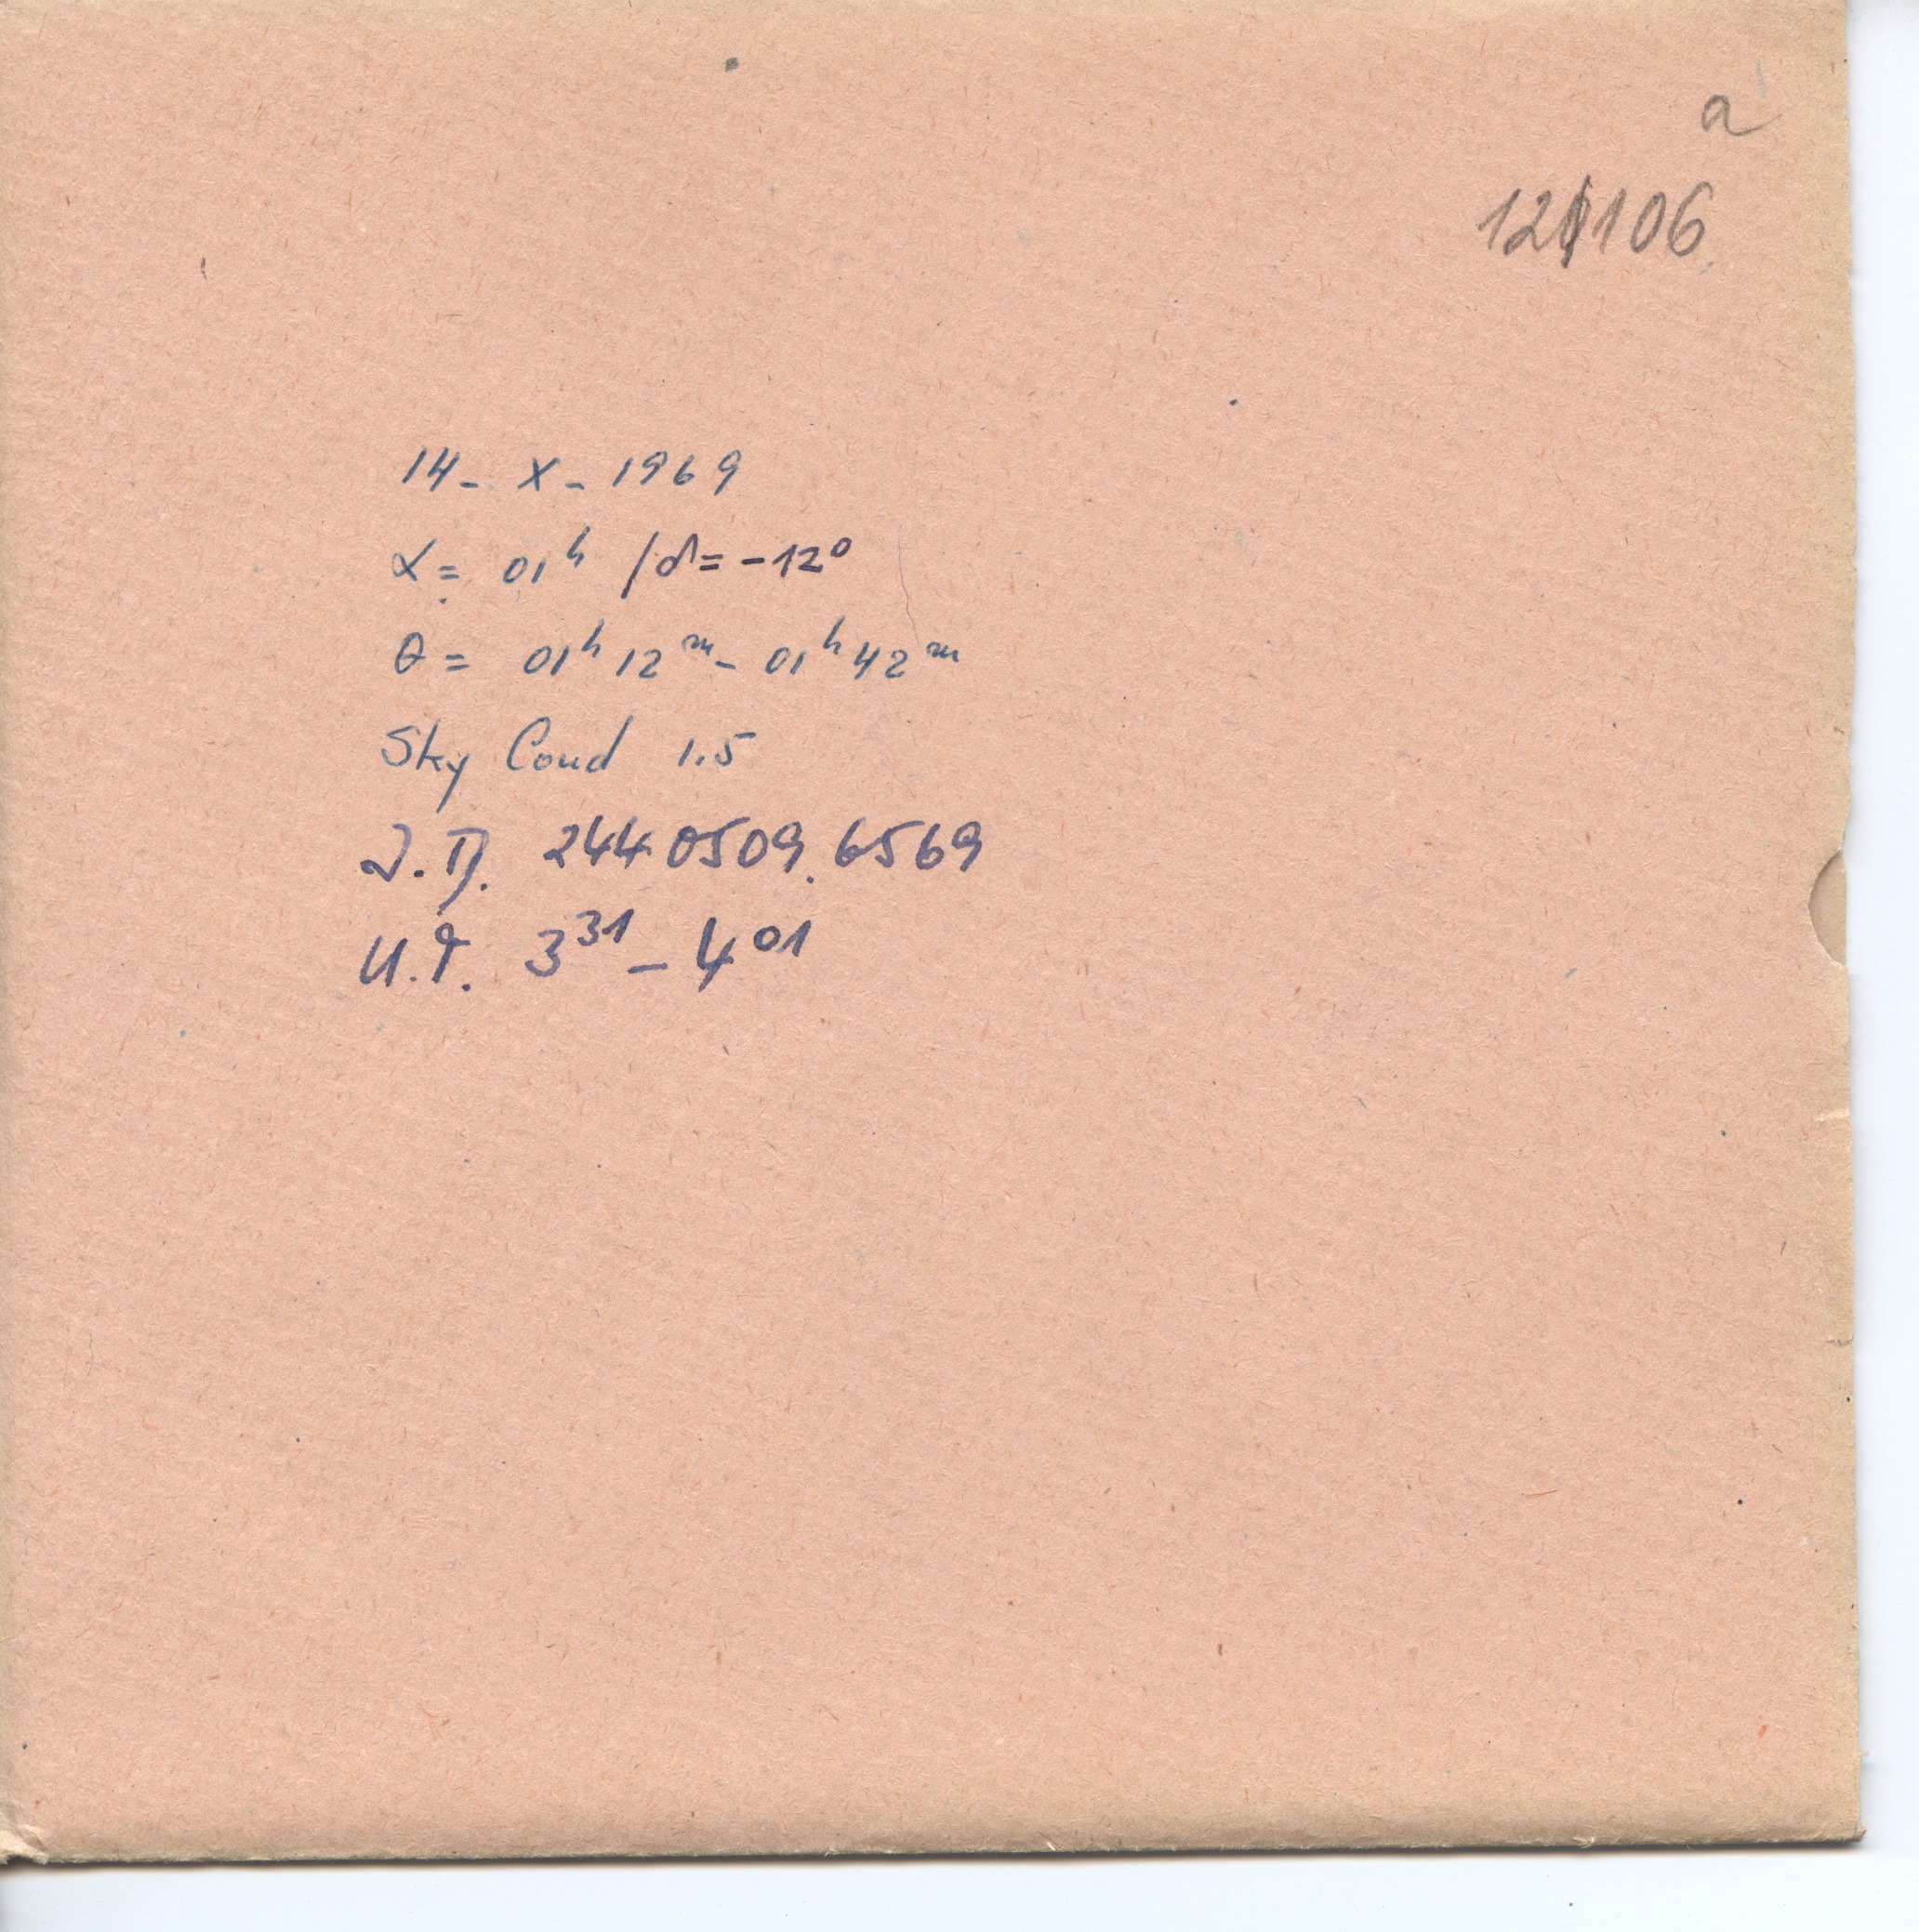 a
12106
14 - X - 1969
α = 01ʰ / δ = -12°
θ = 01ʰ 12ᵐ - 01ʰ 42ᵐ
Sky Cond 1.5
J.D. 244 0509.6569
U.T. 3³¹ - 4⁰¹